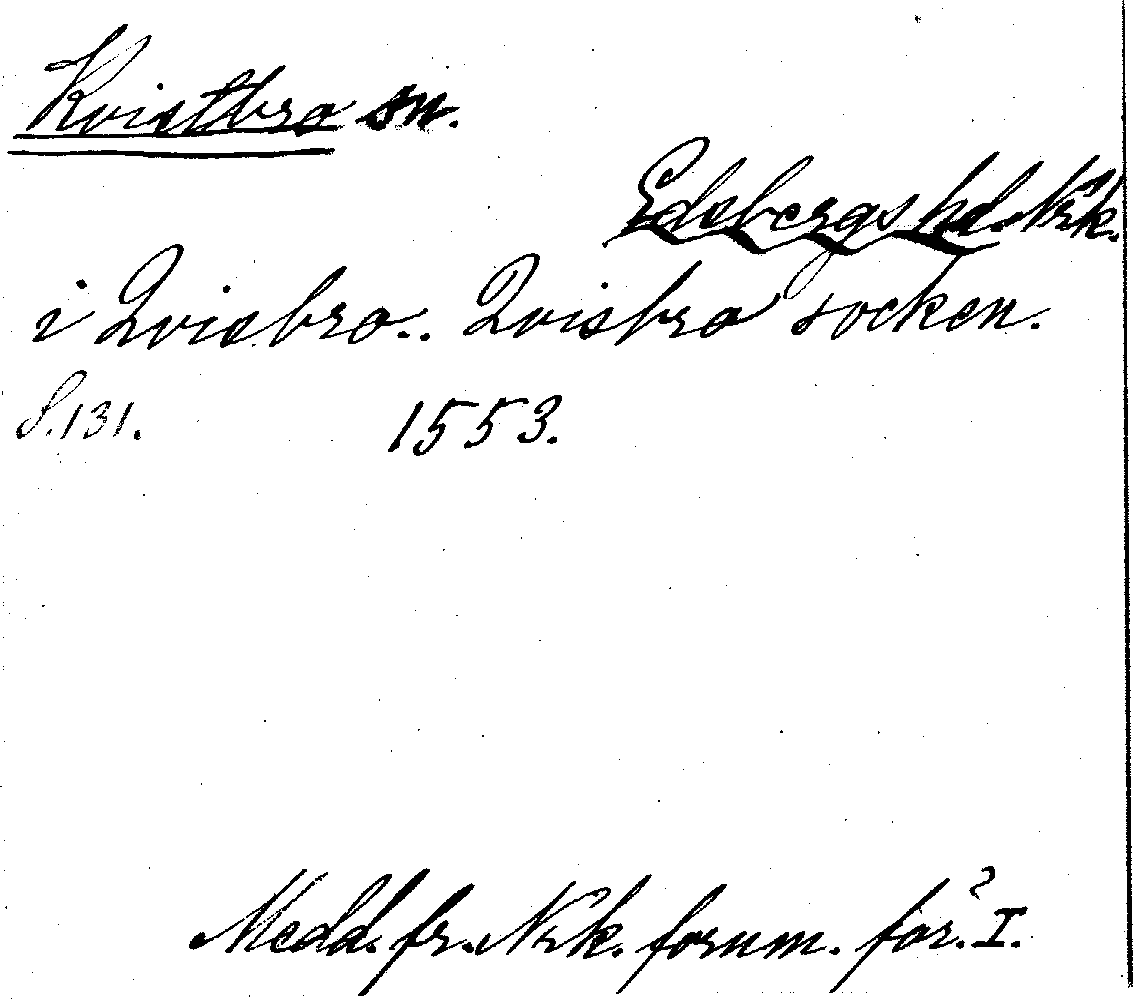 Kvistbro sn.
Edsbergs hd. Nrk.
i Qvisbro.. Qvisbro socken.
S. 131. 1553.
Medd. fr. Nrk. fornm. för. I.